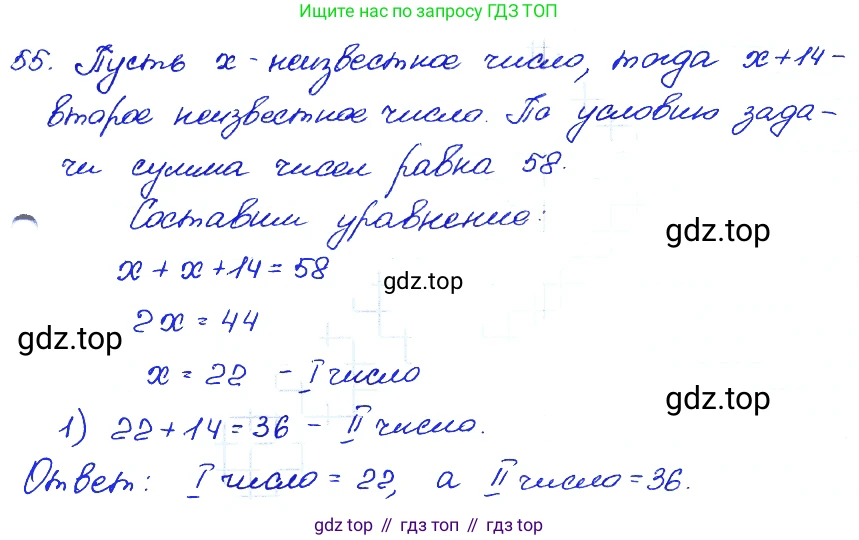 Ищите нас по запросу ГДЗ ТОП
55. Пусть x - неизвестное число, тогда x+14 -
второе неизвестное число. По условию зада-
чи сумма чисел равна 58.
Составим уравнение:
gdz.top
x + x + 14 = 58
gdz.top
2x = 44
gdz.top
x = 22 - I число
gdz.top
1) 22 + 14 = 36 - II число.
Ответ: I число = 22, а II число = 36.
gdz.top // гдз топ // gdz.top